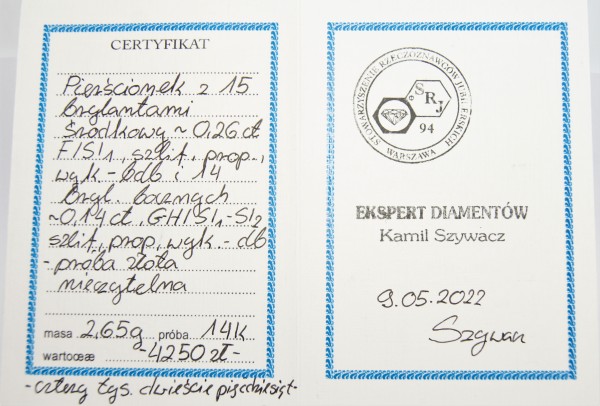 CERTYFIKAT
Pierścionek z 15
brylantami
środkowy ~ 0,26 ct
F/SI1, szlif, prop.,
wyk. - bdb i 14
bryl. bocznych
~0,14 ct. GH/SI1-SI2
szlif, prop, wyk. - db
- próba złota
nieczytelna
masa 2,65g próba 14K
wartoœæ -4250 zł-
- cztery tys. dwieście pięćdziesiąt -
STOWARZYSZENIE RZECZOZNAWCÓW JUBILERSKICH
WARSZAWA
SRJ
94
EKSPERT DIAMENTÓW
Kamil Szywacz
9.05.2022
Szywacz